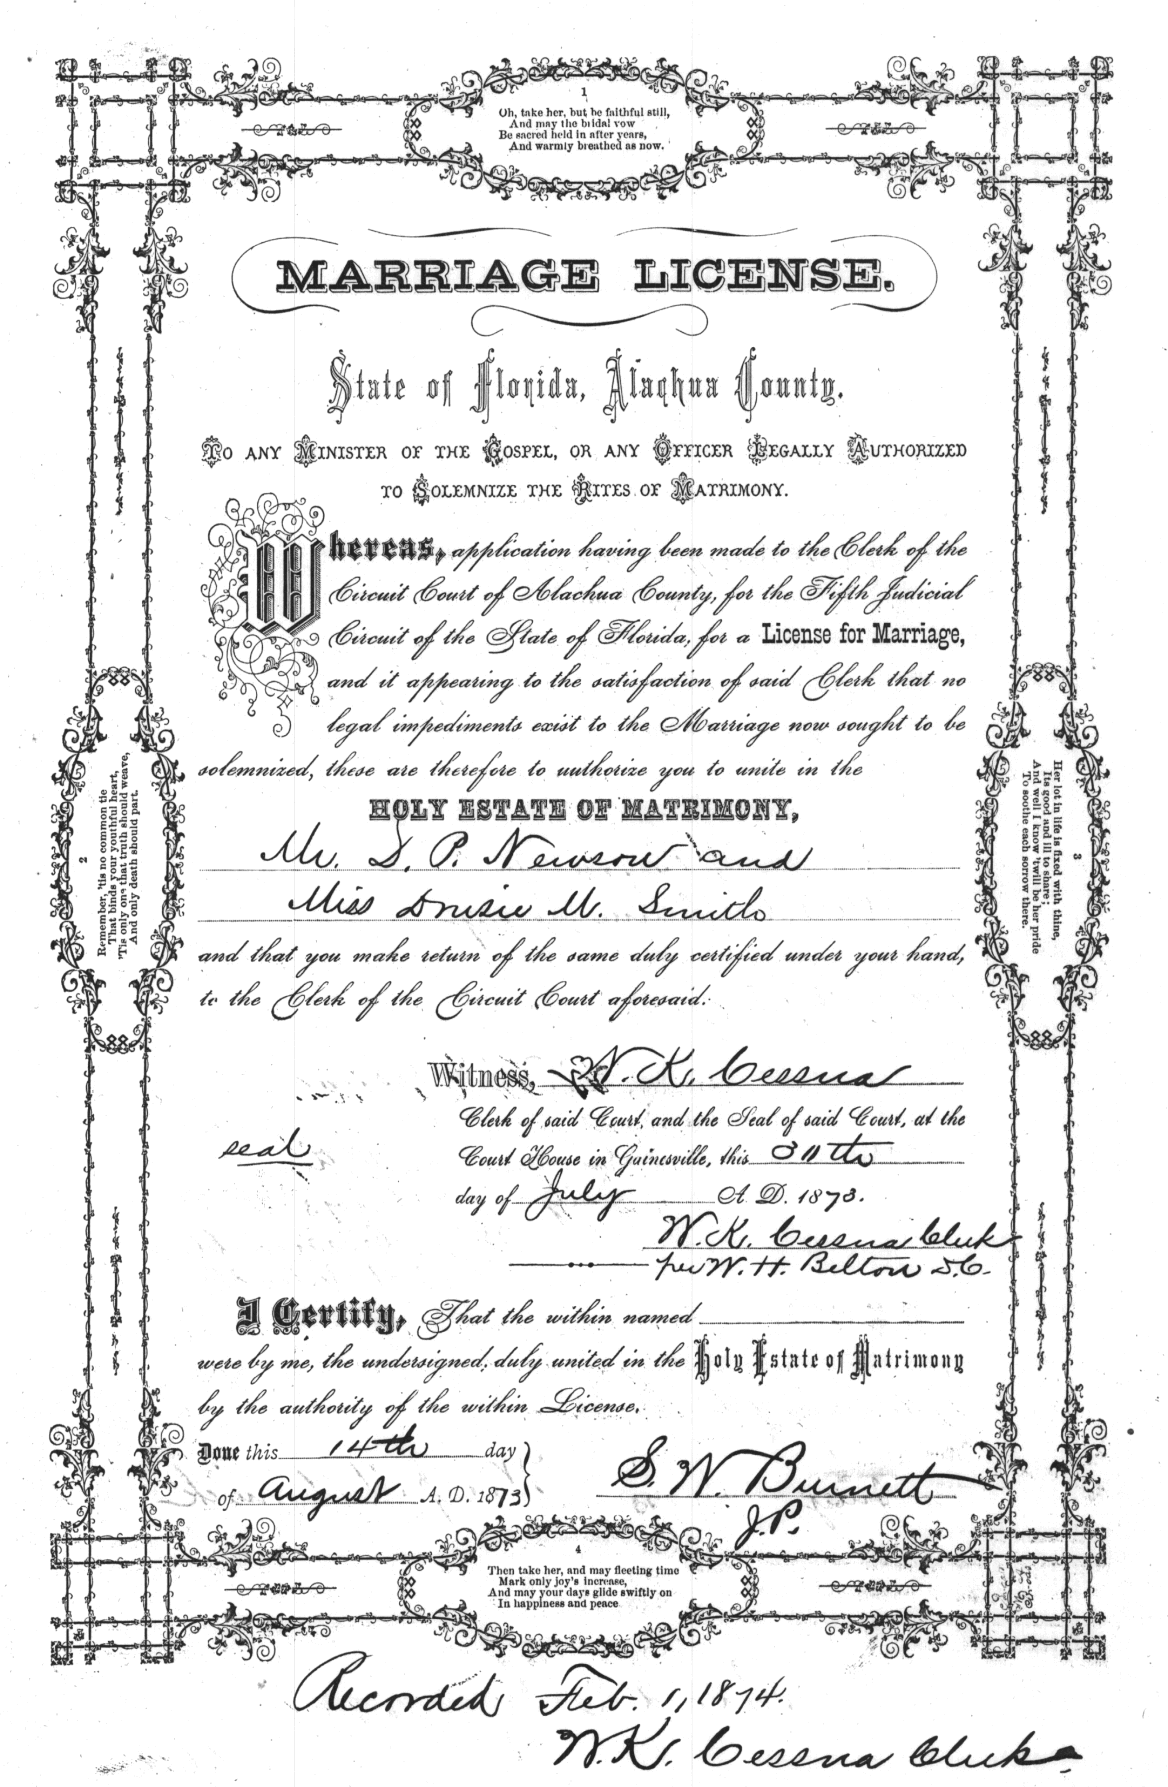 1
Oh, take her, but be faithful still,
And may the bridal vow
Be sacred held in after years,
And warmly breathed as now.
MARRIAGE LICENSE.
State of Florida, Alachua County.
TO ANY MINISTER OF THE GOSPEL, OR ANY OFFICER LEGALLY AUTHORIZED
TO SOLEMNIZE THE RITES OF MATRIMONY.
Whereas, application having been made to the Clerk of the
Circuit Court of Alachua County, for the Fifth Judicial
Circuit of the State of Florida, for a License for Marriage,
and it appearing to the satisfaction of said Clerk that no
legal impediments exist to the Marriage now sought to be
solemnized, these are therefore to authorize you to unite in the
HOLY ESTATE OF MATRIMONY,
Mr. D. P. Newsom and
Miss Drusie M. Smith
and that you make return of the same duly certified under your hand,
to the Clerk of the Circuit Court aforesaid.
2
Remember, 'tis no common tie
That binds your youthful heart,
'Tis only one that truth should weave,
And only death should part.
3
Her lot in life is fixed with thine,
Its good and ill to share;
And well I know 'twill be her pride
To soothe each sorrow there.
Witness, W. K. Cessna
Clerk of said Court, and the Seal of said Court, at the
seal
Court House in Gainesville, this 30th
day of July A. D. 1873.
W. K. Cessna Clerk
per W. H. Belton D.C.
I Certify, That the within named
were by me, the undersigned, duly united in the Holy Estate of Matrimony
by the authority of the within License.
Done this 14th day
of August A. D. 1873
S. W. Burnett
J.P.
4
Then take her, and may fleeting time
Mark only joy's increase,
And may your days glide swiftly on
In happiness and peace
Recorded Feb. 1, 1874.
W. K. Cessna Clerk